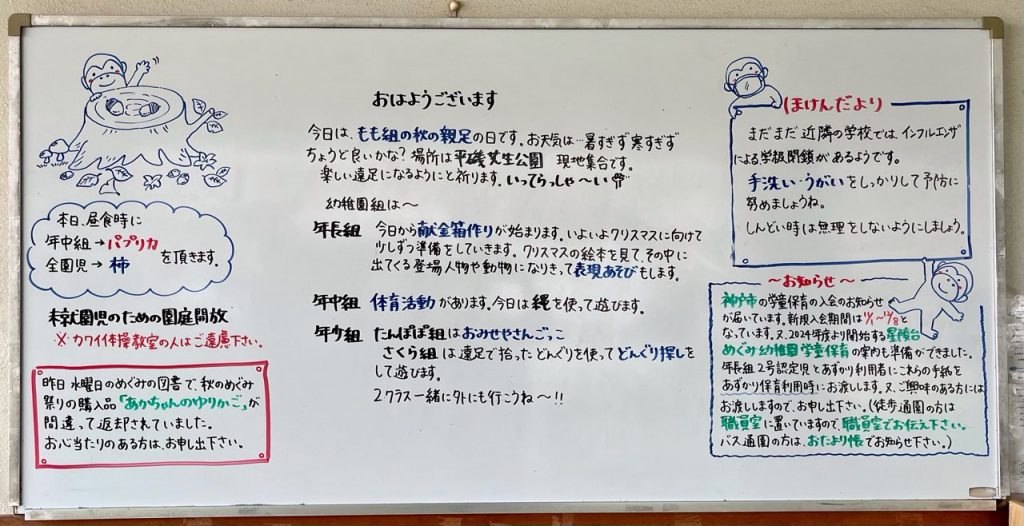 本日、昼食時に
年中組→パプリカ
全園児→柿
を頂きます。
未就園児のための園庭開放
※カワイ体操教室の人はご遠慮下さい。
昨日 水曜日のめぐみの図書で、秋のめぐみ
祭りの購入品「あかちゃんのゆりかご」が
間違って返却されていました。
お心当たりのある方は、お申し出下さい。
おはようございます
今日は、もも組の秋の親足の日です。お天気は…暑すぎず寒すぎず
ちょうど良いかな?場所は平磯芝生公園 現地集合です。
楽しい遠足になるようにと祈ります。いってらっしゃ〜い
幼稚園組は〜
年長組 今日から献金箱作りが始まります。いよいよクリスマスに向けて
少しずつ準備をしていきます。クリスマスの絵本を見て、その中に
出てくる登場人物や動物になりきって表現あそびもします。
年中組 体育活動があります。今日は縄を使って遊びます。
年少組 たんぽぽ組はおみせやさんごっこ
さくら組は遠足で拾ったどんぐりを使ってどんぐり探しを
して遊びます。
2クラス一緒に外にも行こうね〜!!
ほけんだより
まだまだ近隣の学校では、インフルエンザ
による学級閉鎖があるようです。
手洗い・うがいをしっかりして予防に
努めましょうね。
しんどい時は無理をしないようにしましょう。
〜お知らせ〜
神戸市の学童保育の入会のお知らせ
が届いています。新規入会期間は11/1〜12/8と
なっています。又、2024年度より開始する星陵台
めぐみ幼稚園学童保育の案内も準備ができました。
年長組2号認定児とあずかり利用者にこれらの手紙を
あずかり保育利用時にお渡します。又、ご興味のある方には
お渡ししますので、お申し出下さい。(徒歩通園の方は
職員室に置いていますので、職員室でお伝え下さい。
バス通園の方は、おたより帳でお知らせ下さい。)